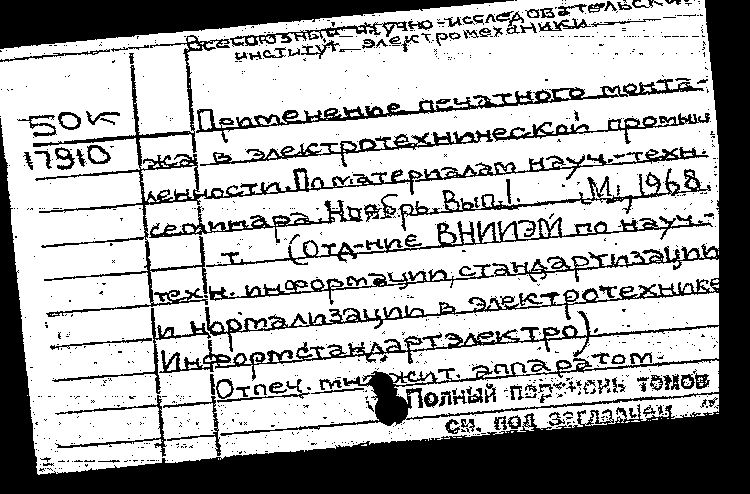 Всесоюзный научно-исследовательский
институт электромеханики
50к
17910
Применение печатного монта-
жа в электротехнической промыш
ленности. По материалам науч.-техн.
семинара. Ноябрь. Вып.1. М., 1968.
т. (Отд-ние ВНИИЭМ по науч.-
техн. информации, стандартизации
и нормализации в электротехнике
Информстандартэлектро).
Отпеч. множит. аппаратом.
Полный перечень томов
см. под заглавием